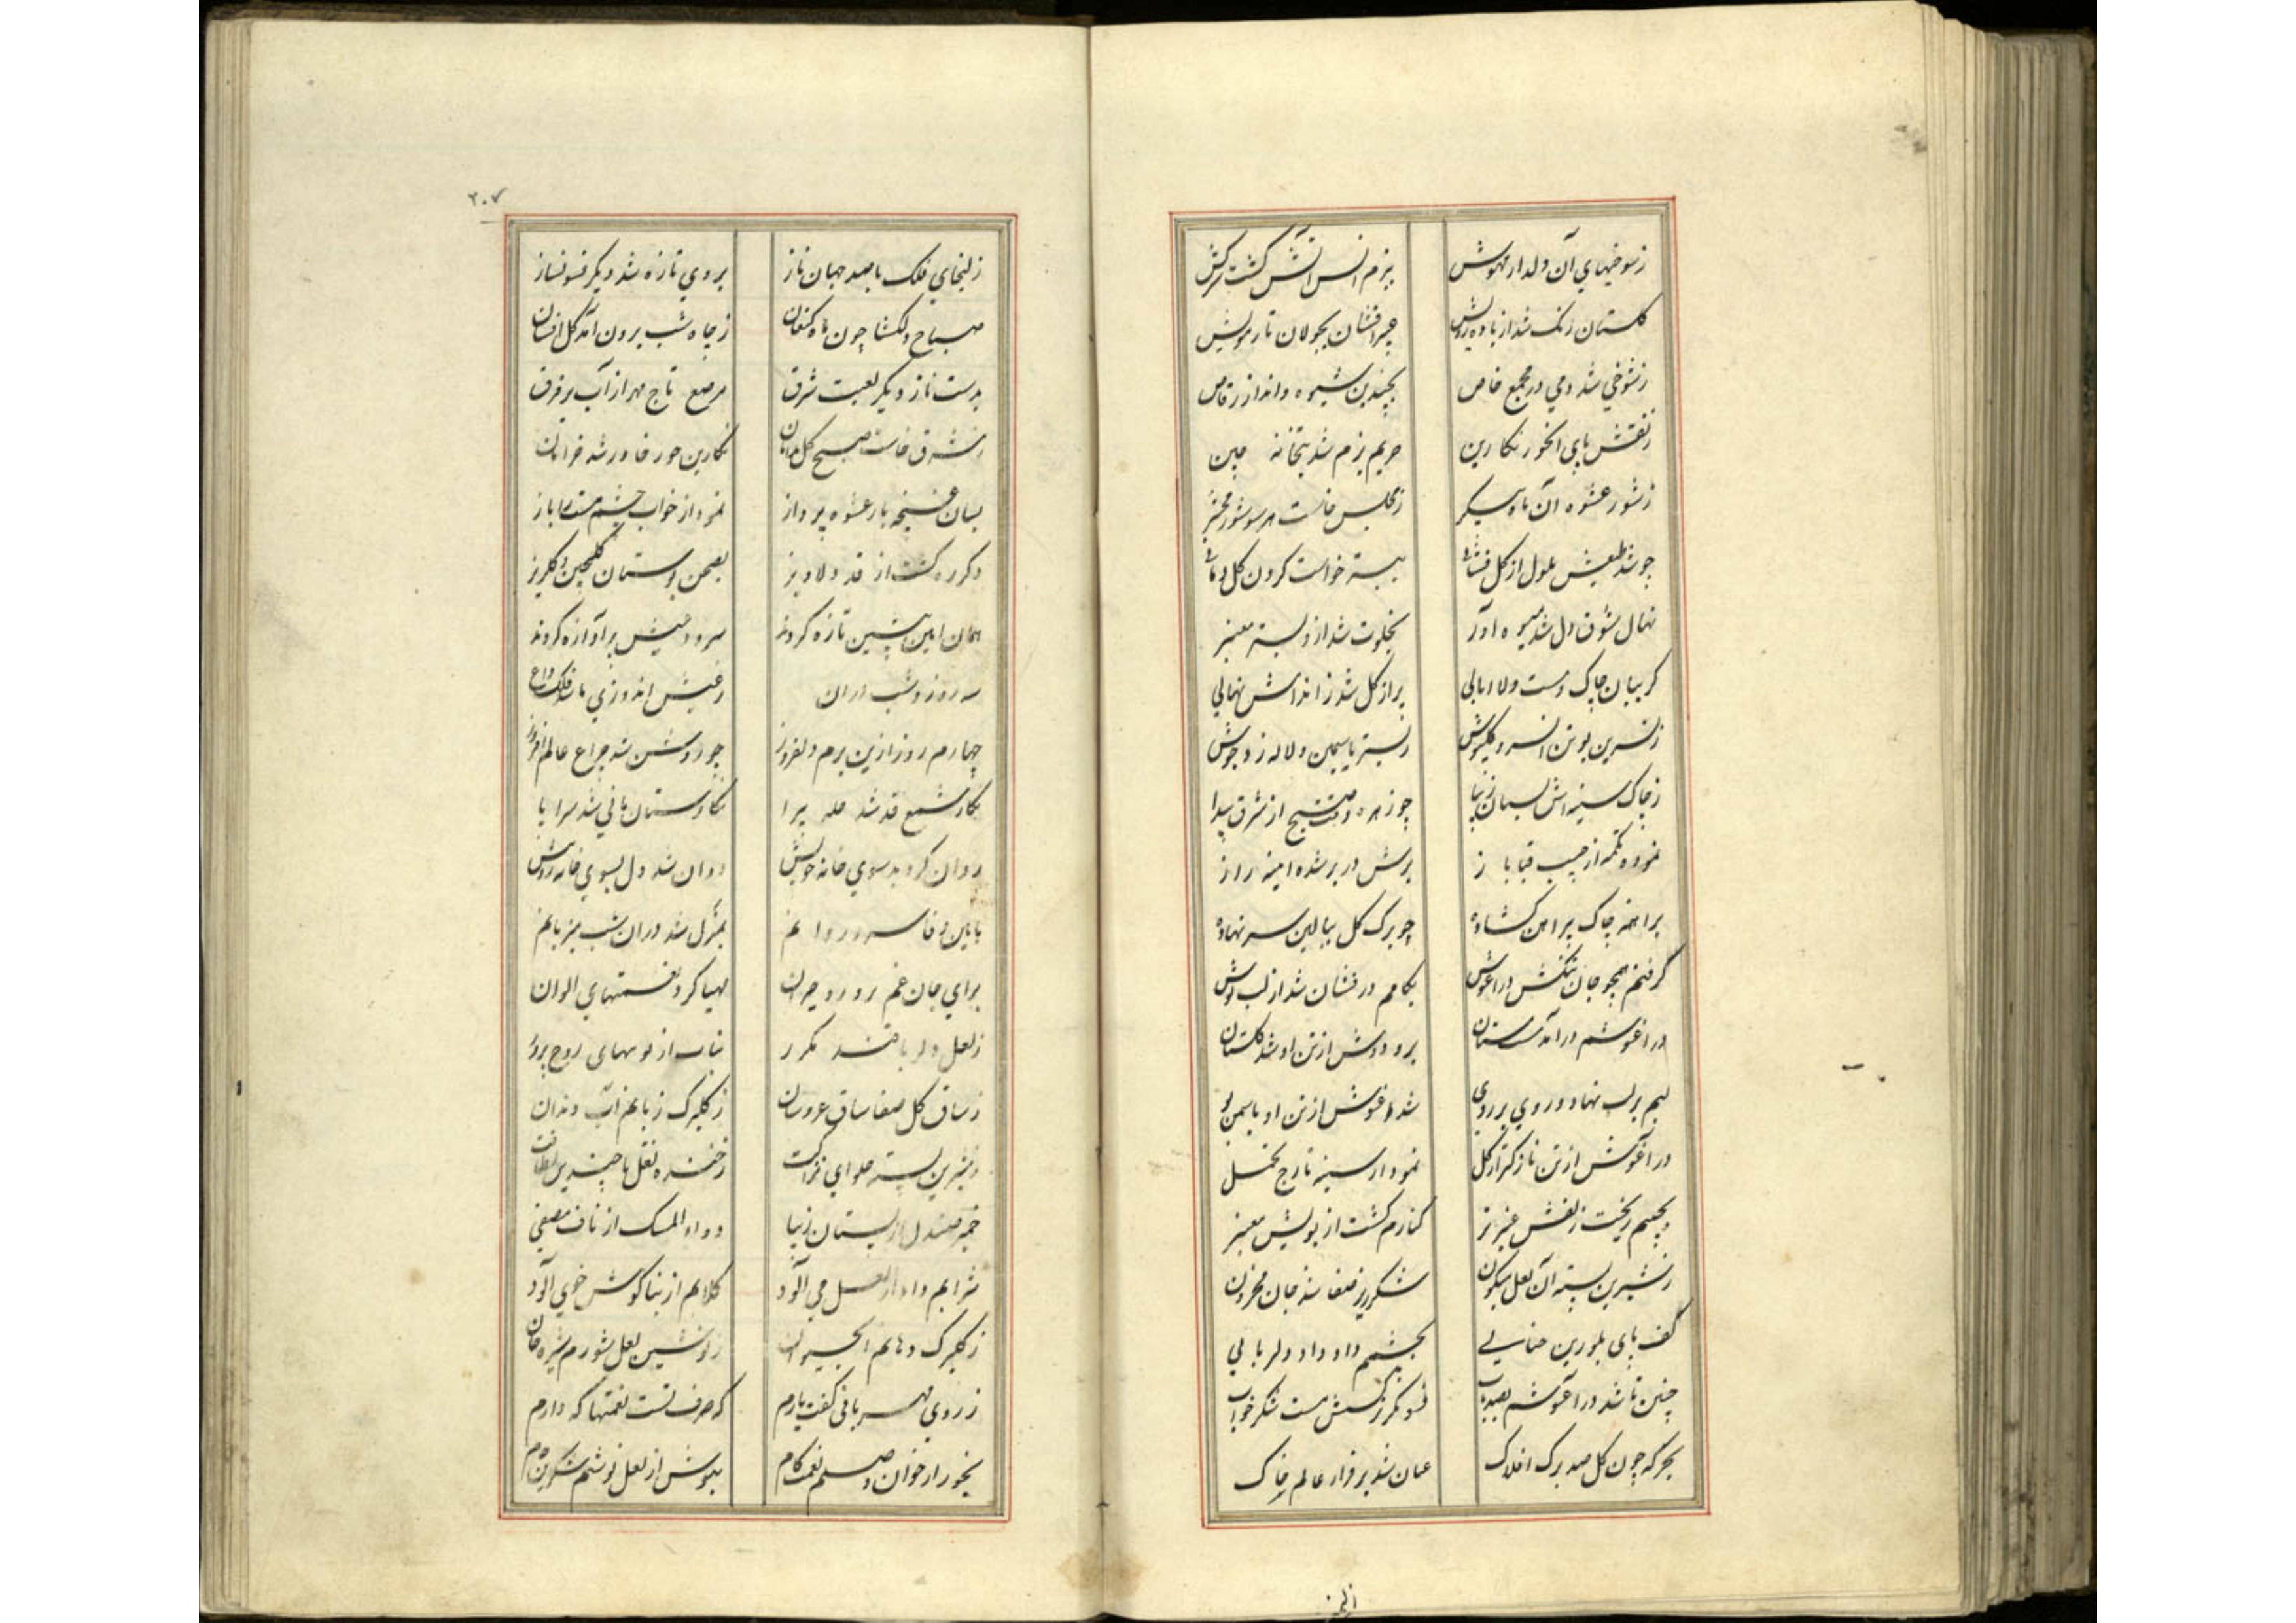 ز شوخیهای آن دلدار مهوش بزم انس آتش گشت سرکش
گلستان رنگ شد از باده رویش عبیر افشان بجولان تار مویش
ز شوخی شد دمی در مجمع خاص بچندین شیوه و انداز رقاص
ز نقش پای انخور نگارین حریم بزم شد بتخانه چین
ز شور عشوه آن ماه پیکر ز مجلس خاست هر سو شور محشر
چو شد طبعش ملول از گل فشانی ببستر خواست کردن گل
نهال شوق دل شد میوه آور بخلوت شد ازو بستر معنبر
گریبان چاک و مست و لاابالی پر از گل شد ز اندامش نهالی
ز نسرین بوتن انسرو گلپوش ز بستر یاسمین و لاله زد جوش
ز چاک سینه اش پستان زیبا چو زهره وقت صبح از شرق پیدا
نموده تکمه از جیب قبا باز برش در بر شده ایینه راز
برهمه چاک پیراهن گشاده چو برک گل ببالین سر نهاده
گرفتم همچو جان تنگش در اغوش بکامم در فشان شد از لب نوش
در اغوشم در آمد برو دوشش از تن او شد گلستان
لبم بر لب نهاد و روی بر روی شد اغوشش از تن او یاسمن بو
در آغوش از تن نازکتر از گل نمودار سینه
بچیبم ریخت زلفش عنبر تر کنارم گشت از بویش معنبر
ز شیرین پسته آن لعل میگون شکرریز صفا شد جان محزون
کف پای بلورین حنایی بچشمم داد داد دلربایی
چنین تا شد در آغوشم بصد ناب نرگسش مست شکر خواب
سحرگه چون گل صد برک افلاک عیان شد بر فراز عالم خاک
۲۰۷
زلیخای فلک با صد جهان ناز بروی تازه شد دیگر فسونساز
صباح دلکشا چون ماه کنعان ز چاه شب برون آمد گل افشان
بدست ناز دیگر لعبت شرق مرصع تاج مهر از آب بر فرق
ز شرق خاست صبح گل نگارین حور خاور شد خرامان
بسان غنچه یار عشوه پرداز نمود از خواب چشم باز
دگرره گشت از قد دلاویز بصحن بوستان گلچین و گلریز
همان ایین پیشین تازه کردند سرود عیش پر آوازه کردند
سه روز و شب ز عیش اندوزی ما شد فلک داغ
چهارم روز ازین بزم دلفروز چو روشن شد چراغ عالم افروز
نگار شمع قد شد حله پیرا نگارستان مانی شد سراپا
روان گردید سوی خانه خویش دوان شد دل بسوی خانه
بایین وفا بمنزل شد در ان شب میزبانم
برای جان غم مهیا کرد نعمتهای الوان
ز لعل دلربا قند مکرر نبات از بوسهای روح پرور
ز ساق گل صفا ساق عروسان ز گلبرک زبانم آب دندان
ز شیرین پسته حلوای نزاکت ز خنده نقل با چندین لطافت
خمیر صندل از پستان زیبا دواء المسک از ناف مصفی
شرابم داد از لعل می آلود گلابم از بناگوش خوی آلود
ز گلبرک دهانم ابحیوان ز نوشین لعل شورم شیره جان
ز روی مهربانی گفت یارم که صرف تست نعمتها که دارم
بخور از خوان وصلم نعمت کام بنوش از لعل نوشم